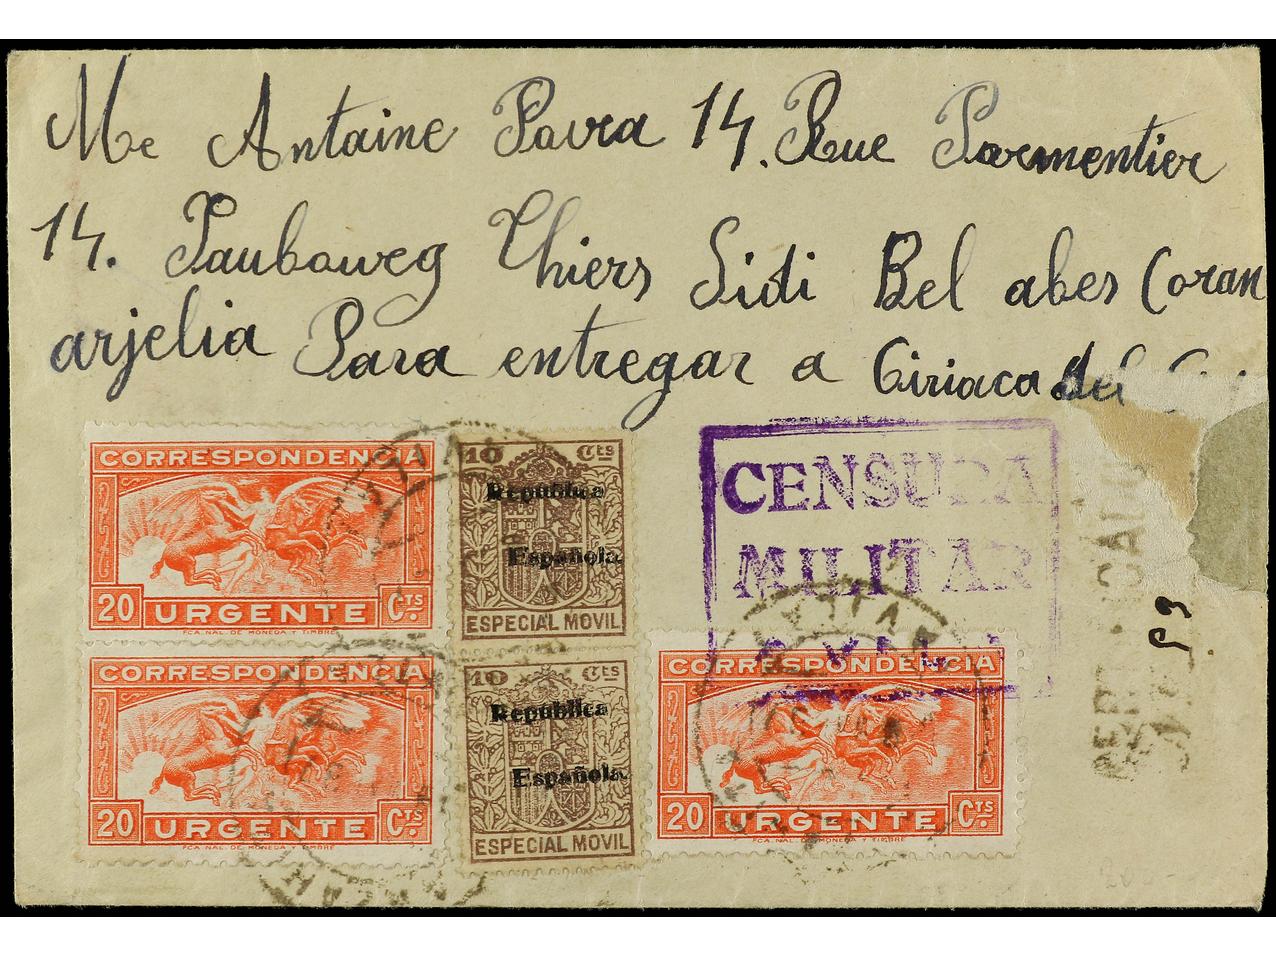 Me Antaine Pavra 14. Rue Parmentier
14. Pauboweg Thiers Sidi Bel abes (oran
arjelia Para entregar a Ciriaca del
CORRESPONDENCIA
20 URGENTE CTS
FCA. NAL. DE MONEDA Y TIMBRE
10 Cts
Republica
Española
ESPECIAL MOVIL
CENSURA
MILITAR
CORRESPONDENCIA
20 URGENTE CTS
FCA. NAL. DE MONEDA Y TIMBRE
10 Cts
Republica
Española
ESPECIAL MOVIL
CORRESPONDENCIA
20 URGENTE CTS
FCA. NAL. DE MONEDA Y TIMBRE